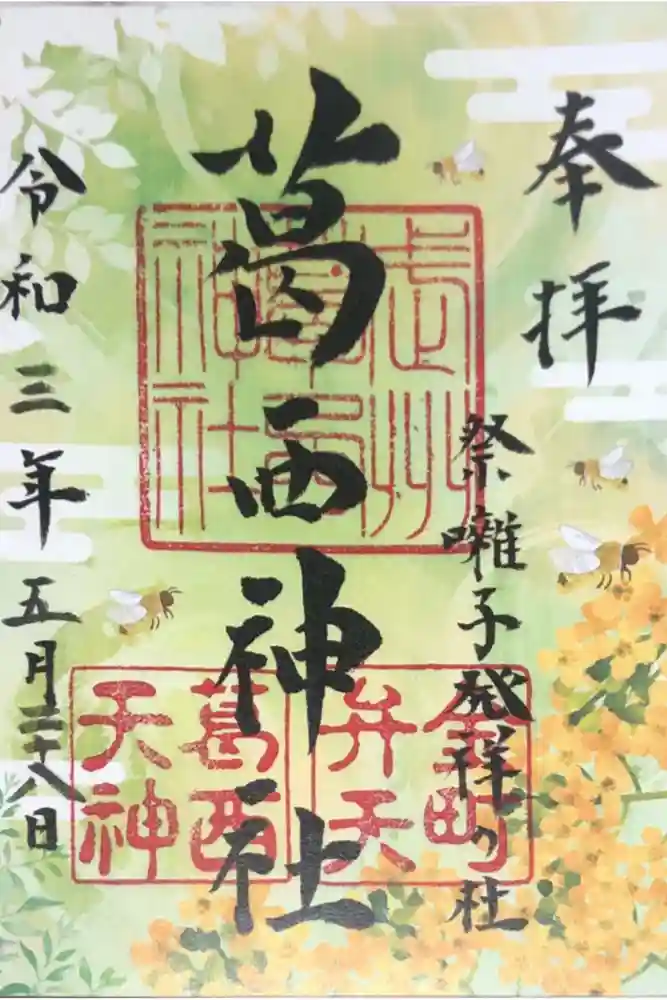 奉拝
祭囃子発祥の社
葛西神社
令和三年五月二十八日
武州葛西神社
金町弁天
葛西天神